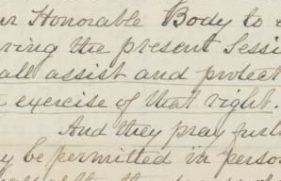 Honorable Body to
the present Sessi
all assist and protect
exercise of that right.
And they pray furt
be permitted in perso